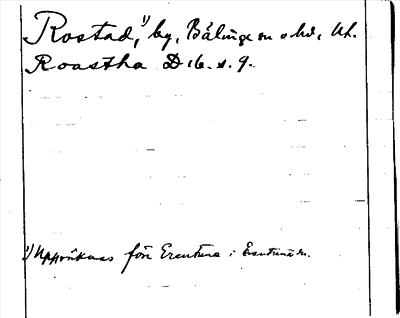 Rostad,¹) by, Bälinge sn o hd, Upl.
Roastha D 16. s. 9.
¹) Uppräknas före Erentuna i Erentuna sn.